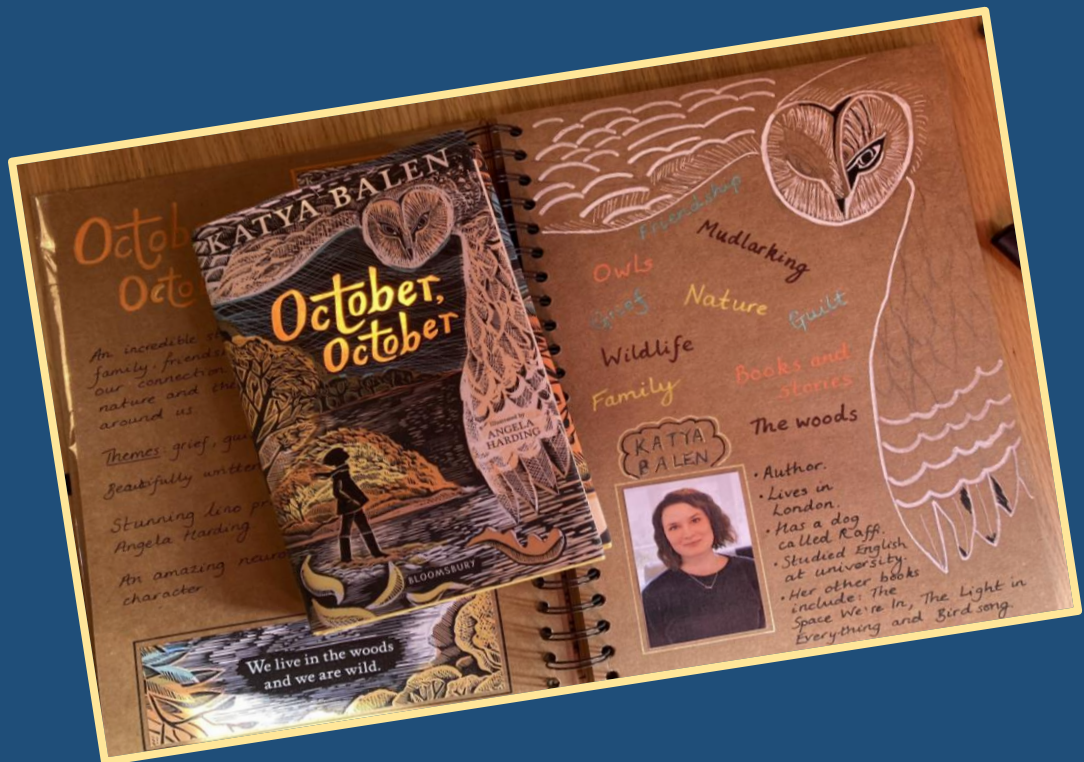 Octob
Octo
An incredible st
family, friends
our connection
nature and the
around us.
Themes: grief, gui
Beautifully written
Stunning lino pr
Angela Harding
An amazing neuro
character
We live in the woods
and we are wild.
KATYA BALEN
October,
October
Illustrated by
ANGELA
HARDING
BLOOMSBURY
Friendship
Mudlarking
Owls
Grief
Nature
Guilt
Wildlife
Books and
stories
Family
The woods
KATYA
BALEN
• Author.
• Lives in
London.
• Has a dog
called Raffi.
• Studied English
at university.
• Her other books
include: The
Space We're In, The Light in
Everything and Birdsong.